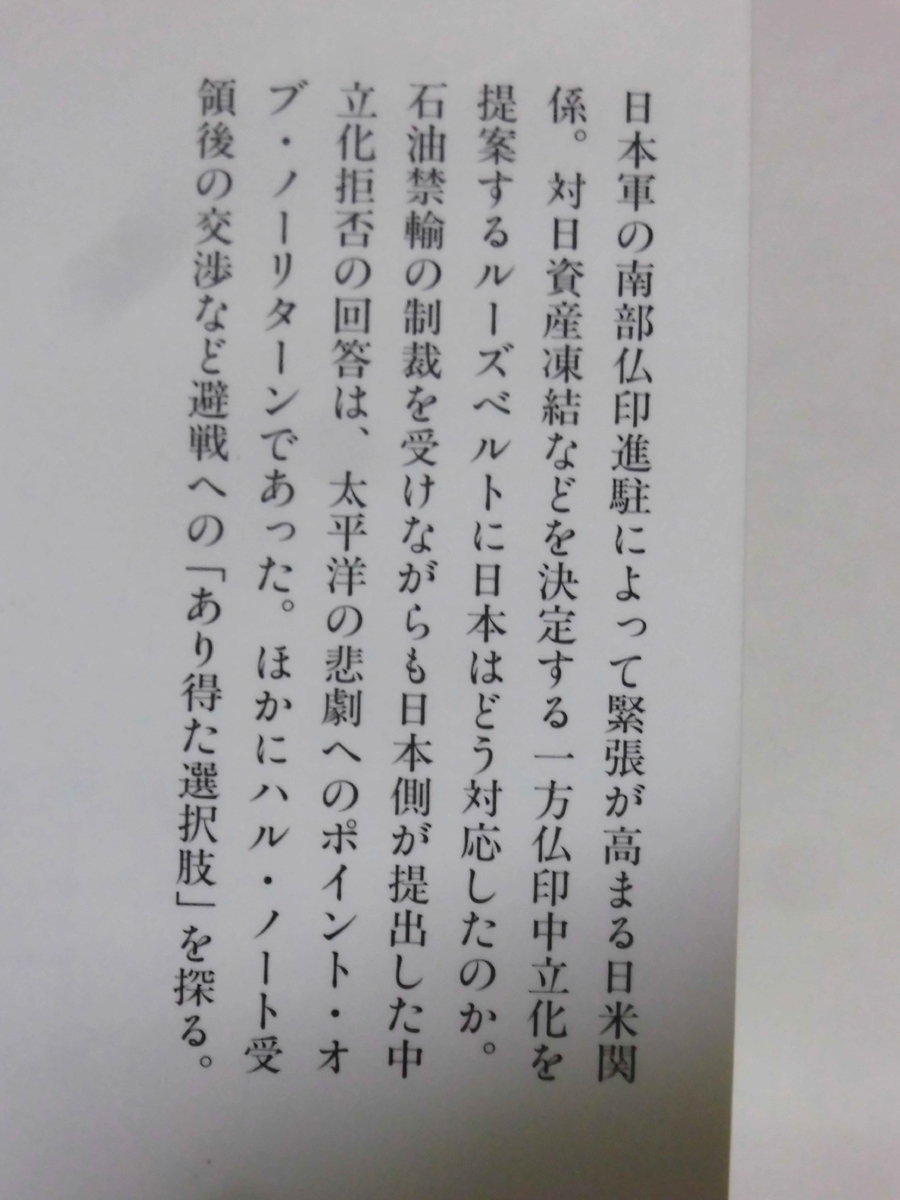 日本軍の南部仏印進駐によって緊張が高まる日米関
係。対日資産凍結などを決定する一方仏印中立化を
提案するルーズベルトに日本はどう対応したのか。
石油禁輸の制裁を受けながらも日本側が提出した中
立化拒否の回答は、太平洋の悲劇へのポイント・オ
ブ・ノーリターンであった。ほかにハル・ノート受
領後の交渉など避戦への「あり得た選択肢」を探る。